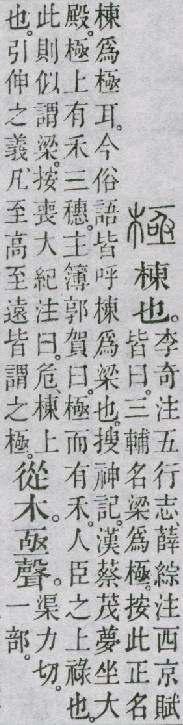 極 棟也。
李奇注五行志薛綜注西京賦
皆曰。三輔名梁爲極。按此正名
棟爲極耳。今俗語皆呼棟爲梁也。搜神記。漢蔡茂夢坐大
殿。極上有禾三穗。主簿郭賀曰。極而有禾。人臣之上祿也。
此則似謂梁。按喪大紀注曰。危棟上
也。引伸之義凡至高至遠皆謂之極。
從木。亟聲。
渠力切。
一部。